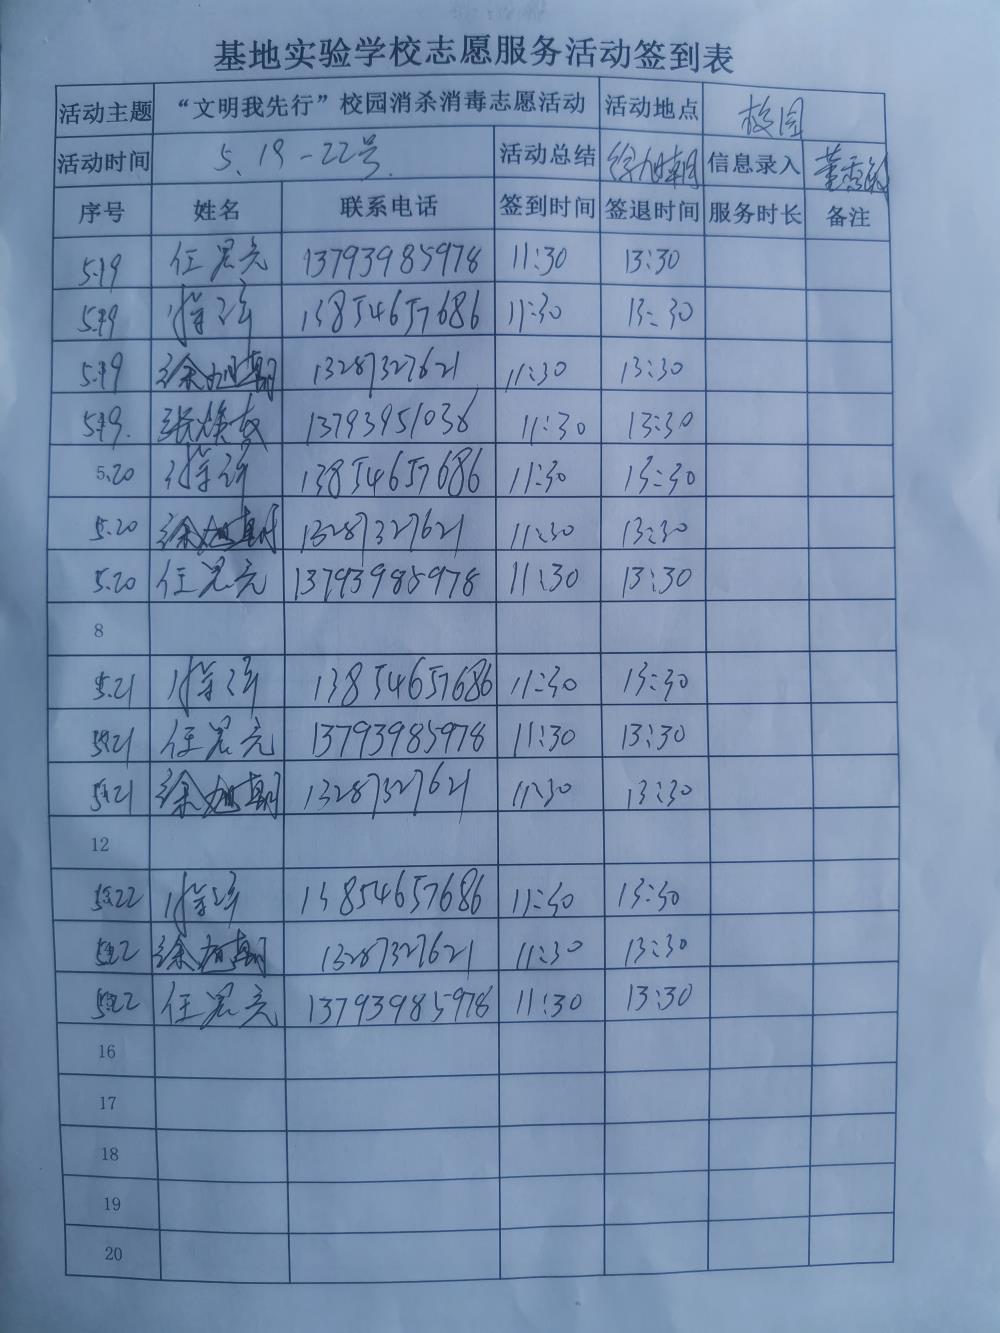 基地实验学校志愿服务活动签到表
活动主题 “文明我先行”校园消杀消毒志愿活动 活动地点 校园
活动时间 5.19-22号. 活动总结 徐旭朝 信息录入 董
序号 姓名 联系电话 签到时间 签退时间 服务时长 备注
5.19 任 亮 13793985978 11:30 13:30
5.19 13854657686 11:30 13:30
5.19 徐旭朝 13287327621 11:30 13:30
5.19. 张焕 13793951038 11:30 13:30
5.20 13854657686 11:30 13:30
5.20 徐旭朝 13287327621 11:30 13:30
5.20 任 亮 13793985978 11:30 13:30
8
5.21 13854657686 11:30 13:30
5.21 任 亮 13793985978 11:30 13:30
5.21 徐旭朝 13287327621 11:30 13:30
12
5.22 13854657686 11:30 13:30
5.22 徐旭朝 13287327621 11:30 13:30
5.22 任 亮 13793985978 11:30 13:30
16
17
18
19
20